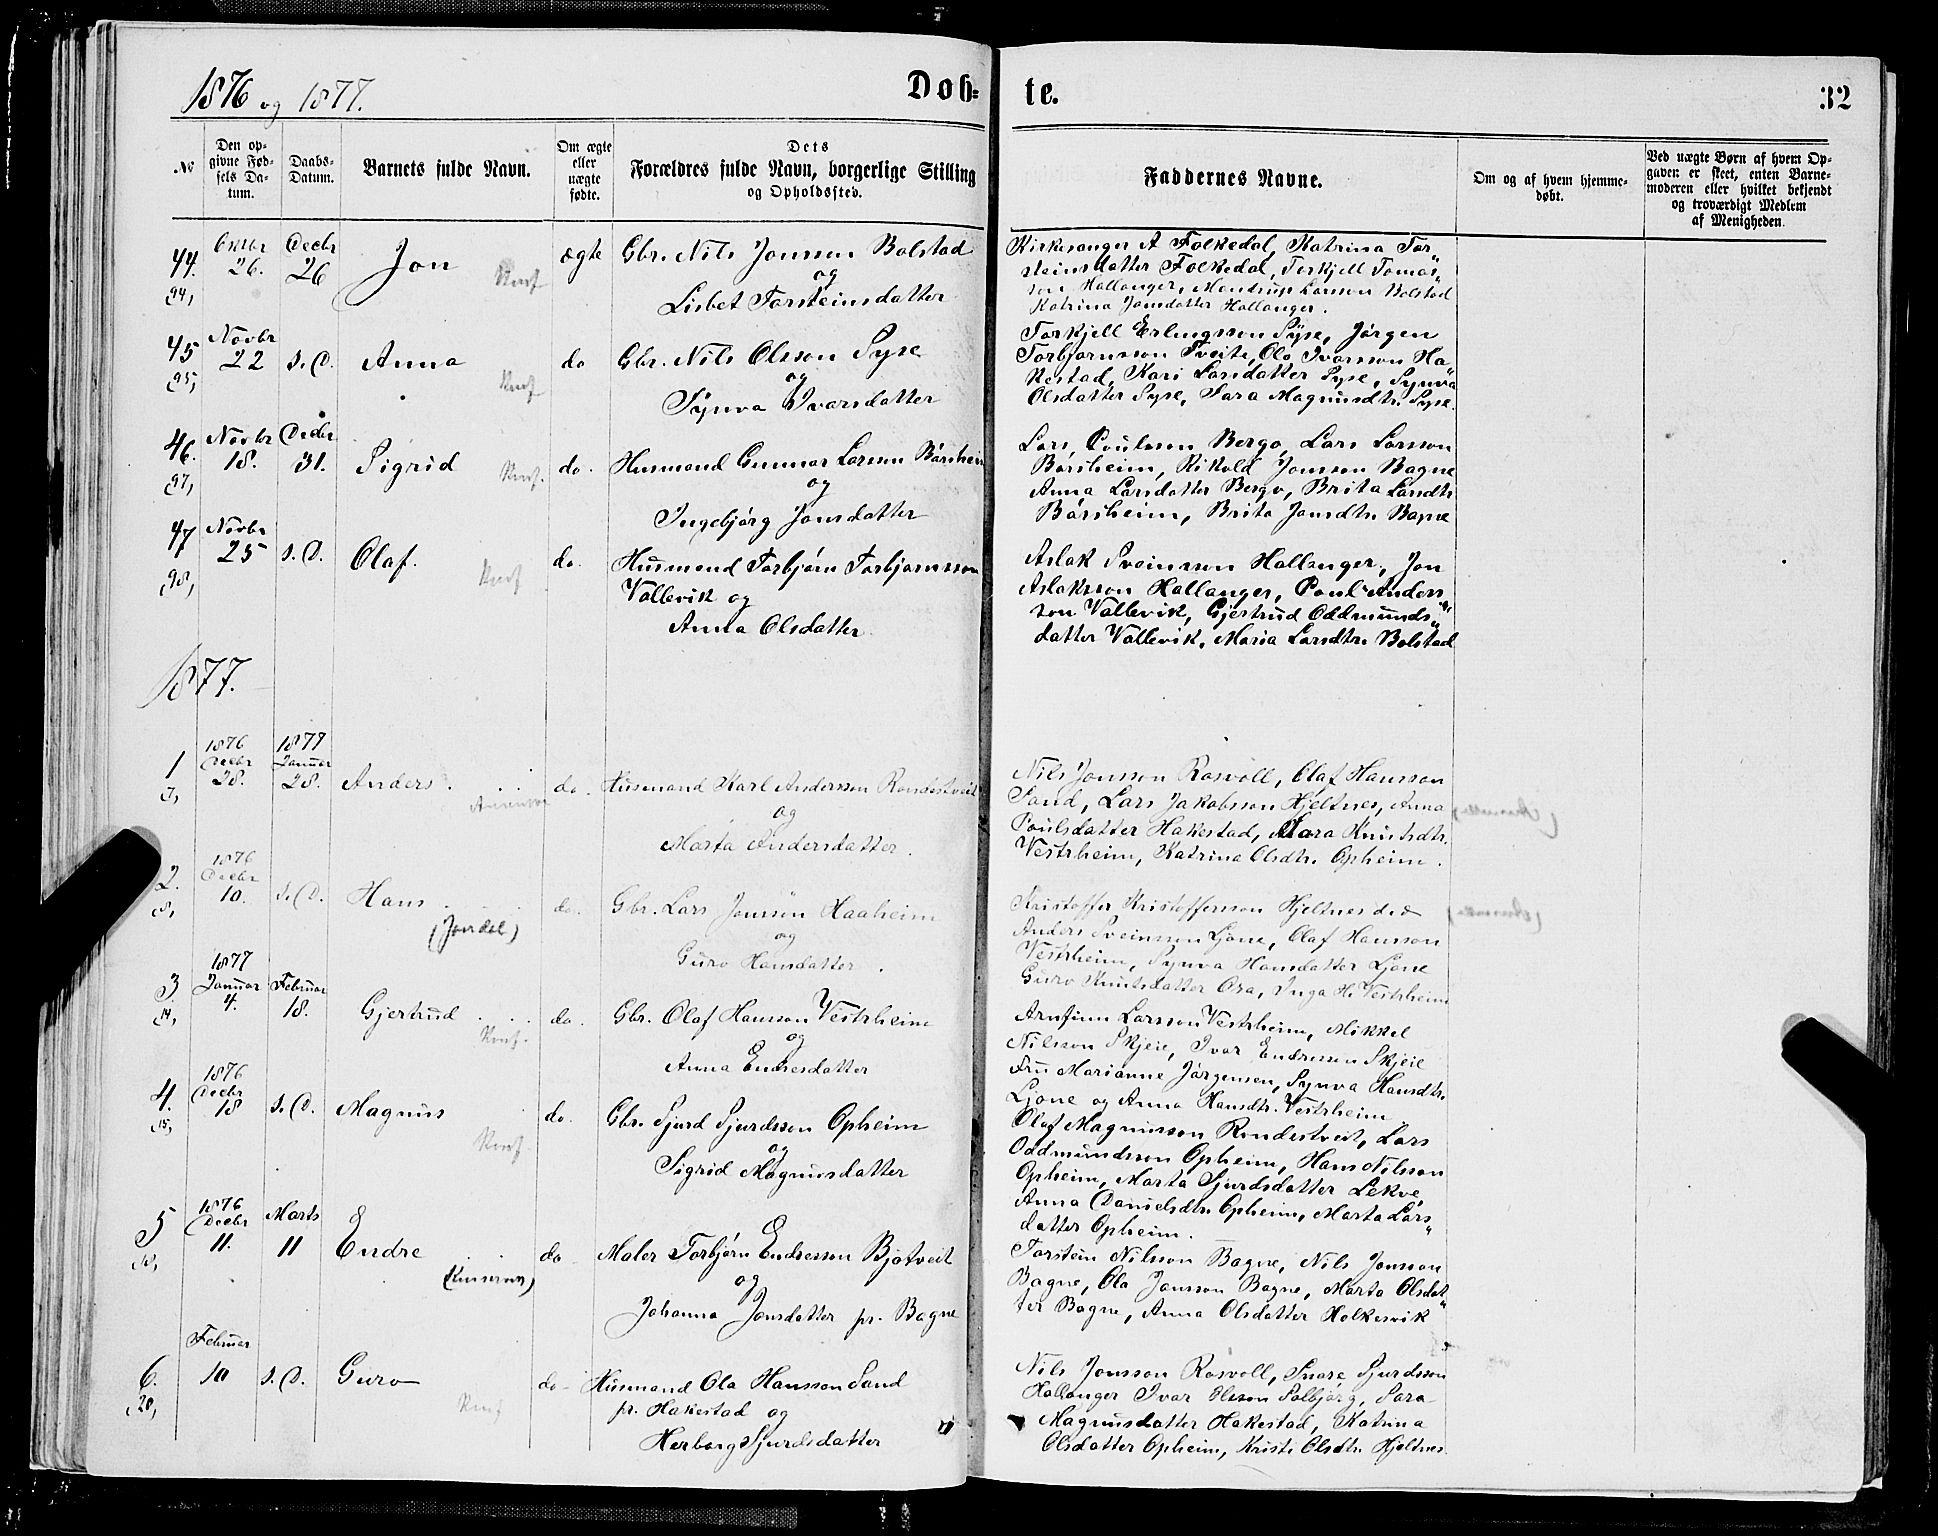 1876 og 1877.
Døb-
te.
32
No
Den op-
givne Fød-
sels Da-
tum.
Daabs-
Datum.
Barnets fulde Navn.
Om ægte
eller
uægte
fødte.
Dets
Forældres fulde Navn, borgerlige Stilling
og Opholdssted.
Faddernes Navne.
Om og af hvem hjemme-
døbt.
Ved uægte Børn af hvem Op-
gaven er skeet, enten Barne-
moderen eller hvilket bekjendt
og troværdigt Medlem
af Menigheden.
44.
(94,
Oktbr
26.
Decbr
26
Jon
Konf
ægte
Gbr. Nils Jonsson Bolstad
og
Lisbet Torsteinsdatter
Kirkesanger A Folkedal, Katrina Tor„
steinsdatter Folkedal, Torkjell Tomas„
son Hallanger, Larsson Bolstad
Katrina Jonsdatter Hallanger.
45
(95,
Novbr
22
s. D.
Anna
Konf
do
Gbr. Nils Olsson Syse
og
Synva Ivarsdatter
Torkjell Erlingsson Syse, Jørgen
Torbjørnsson Tveite, Ola Ivarsson Ha„
kestad, Kari Larsdatter Syse, Synva
Olsdatter Syse, Sara Magnusdtr. Syse.
46.
(97,
Novbr
18.
Decbr
31.
Sigrid
Konf.
do.
Husmand Gunnar Larsson Børsheim
og
Ingebjørg Jonsdatter
Lars Poulsson Bergo, Lars Larsson
Børsheim, Rikold Jonsson Bagne
Anna Larsdatter Bergo, Brita Larsdtr
Børsheim, Brita Jonsdtr. Bagne
47
(98,
Novbr
25
s. D.
Olaf.
Konf
do.
Husmand Torbjørn Torbjørnsson
Vallevik og
Anna Olsdatter.
Aslak Sveinsson Hallanger, Jon
Aslaksson Hallanger, Poul Anders„
son Vallevik, Gjertrud Oddmunds„
datter Vallevik, Maria Larsdtr. Bolstad
1877.
1
(7,
1876
Decbr
28.
1877
Januar
28.
Anders.
do.
Husmand Karl Andersson Rondestveit
og
Marta Andersdatter.
Nils Jonsson Rosvoll, Olaf Hansson
Sand, Lars Jakobsson Hjeltnes, Anna
Poulsdatter Hakestad, Mara Knutsdtr.
Vestrheim, Katrina Olsdtr. Opheim.
2.
(8,
1876
Decbr
10.
s. D.
Hans
(Jondal)
do.
Gbr. Lars Jonsson Haaheim
og
Guro Hansdatter.
Kristoffer Kristoffersson Hjeltnes
Anders Sveinsson Ljone, Olaf Hansson
Vestrheim, Synva Hansdatter Ljone
Guro Knutsdatter Ora, Inga H. Vestrheim
3
(14,
1877
Januar
4.
Februar
18.
Gjertrud
Konf.
do.
Gbr. Olaf Hansson Vestrheim
og
Anna Endresdatter
Arnfinn Larsson Vestrheim, Mikkel
Nilsson Skjeie, Ivar Endresson Skjeie
Fru Marianne Jørgensen, Synva Hansdtr.
Ljone og Anna Hansdtr. Vestrheim
4.
(15,
1876
Decbr
18
s. D.
Magnus
Konf
do.
Gbr. Sjurd Sjurdsson Opheim
og
Sigrid Magnusdatter
Olaf Magnusson Rondestveit, Lars
Oddmundsson Opheim, Hans Nilsson
Opheim, Marta Sjurdsdatter Lekve
Anna Danielsdtr. Opheim, Marta Lars„
datter Opheim.
5
(18,
1876
Decbr
11.
Marts
11
Endre
(Kinservik)
do
Maler Torbjørn Endresson Bjotveit
og
Johanna Jonsdatter pr. Bagne
Torstein Nilsson Bagne, Nils Jonsson
Bagne, Ola Jonsson Bagne, Marta Olsdat„
ter Bagne, Anna Olsdatter Holkesvik
6.
(20,
Februar
10
s. D.
Guro
Konf
do
Husmand Ola Hansson Sand
pr. Hakestad og
Herborg Sjurdsdatter
Nils Jonsson Rosvoll, Snare Sjurdsson
Hallanger Ivar Olsson Solbjørg, Sara
Magnusdatter Hakestad, Katrina
Olsdatter Opheim, Kristi Olsdtr. Hjeltnes